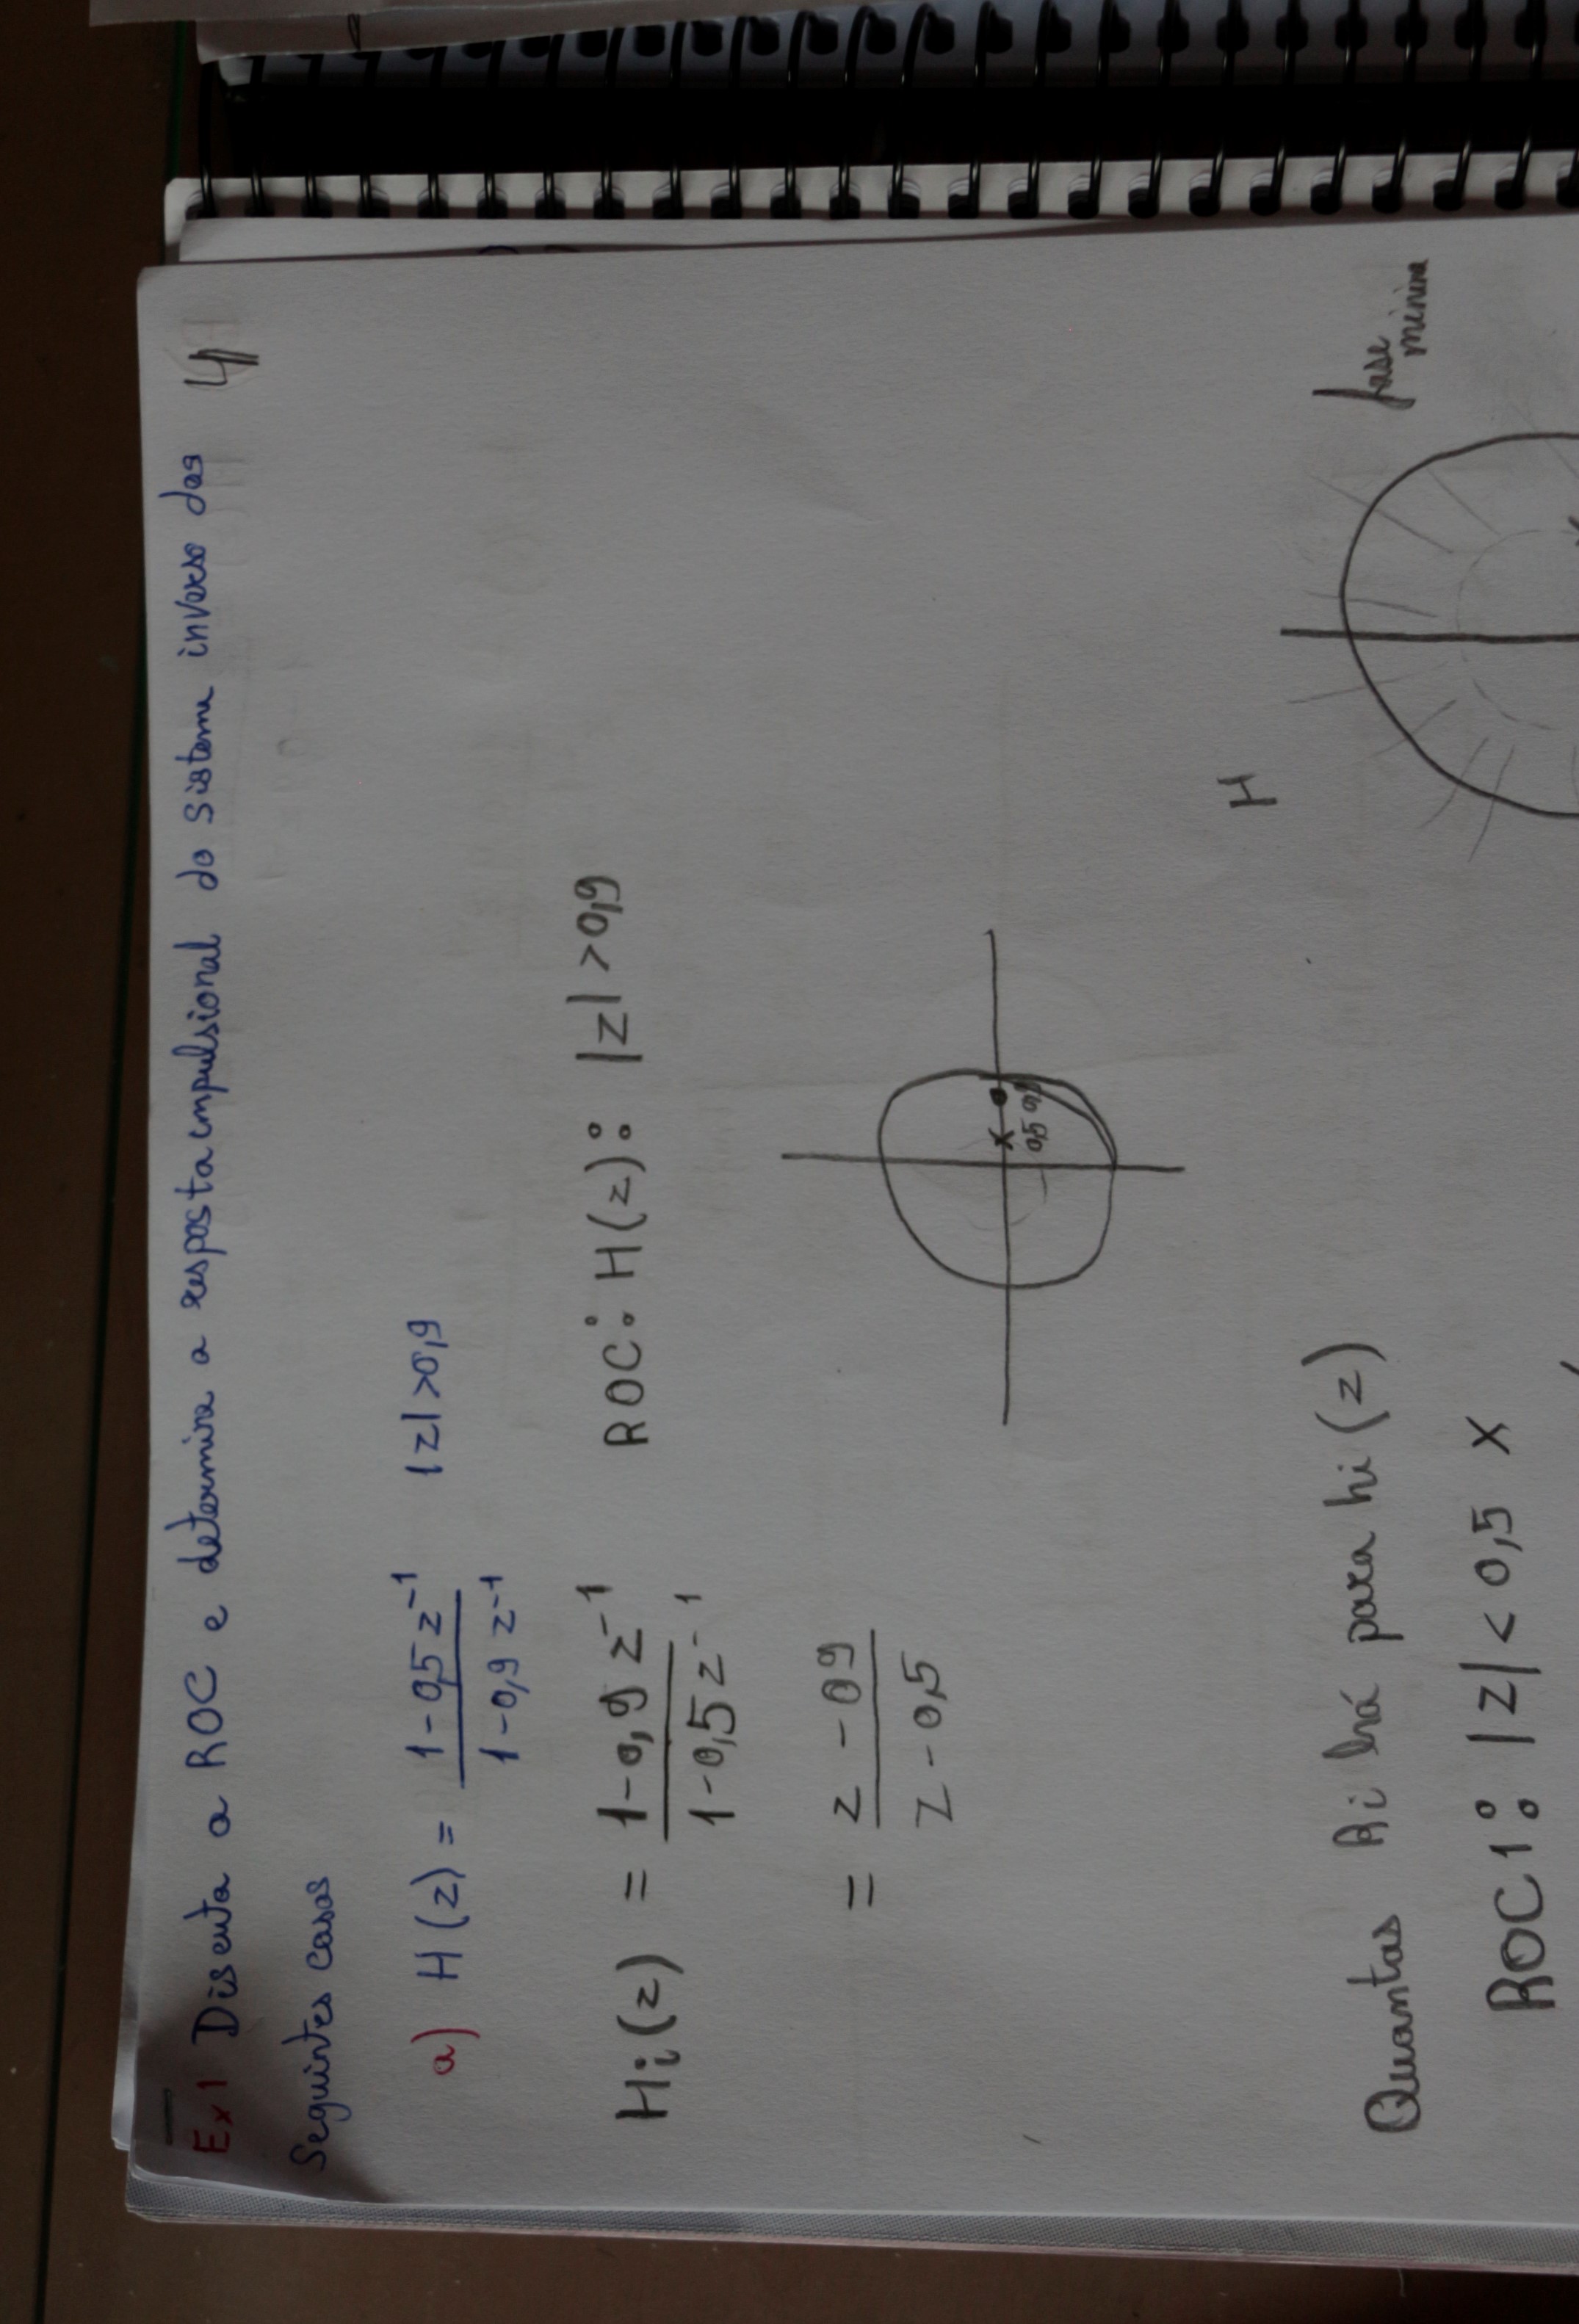 Ex1 Discuta a ROC e determine a resposta impulsional do sistema inverso dos
4
Seguintes casos
a) H(z) = (1-0,5z⁻¹)/(1-0,9z⁻¹) |z|>0,9
Hi(z) = (1-0,9z⁻¹)/(1-0,5z⁻¹) ROC: H(z): |z|>0,9
= (z-09)/(z-0,5)
0,5 0,9
H
fase
mínima
Quantas Ri há para hi(z)
ROC1: |z|<0,5 x